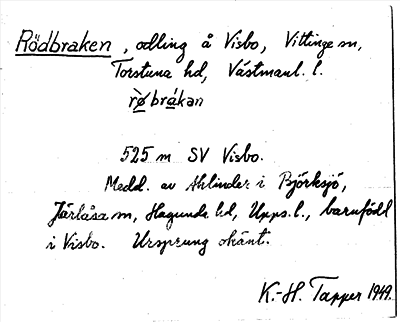 Rödbraken, odling å Visbo, Vittinge sn,
Torstuna hd, Västmanl. l.
rø̀brákan
525 m SV Visbo.
Medd. av Ahlinder i Björksjö,
Järlåsa sn, Hagunda hd, Upps. l., barnfödd
i Visbo. Ursprung okänt.
K.-H. Tapper 1949.